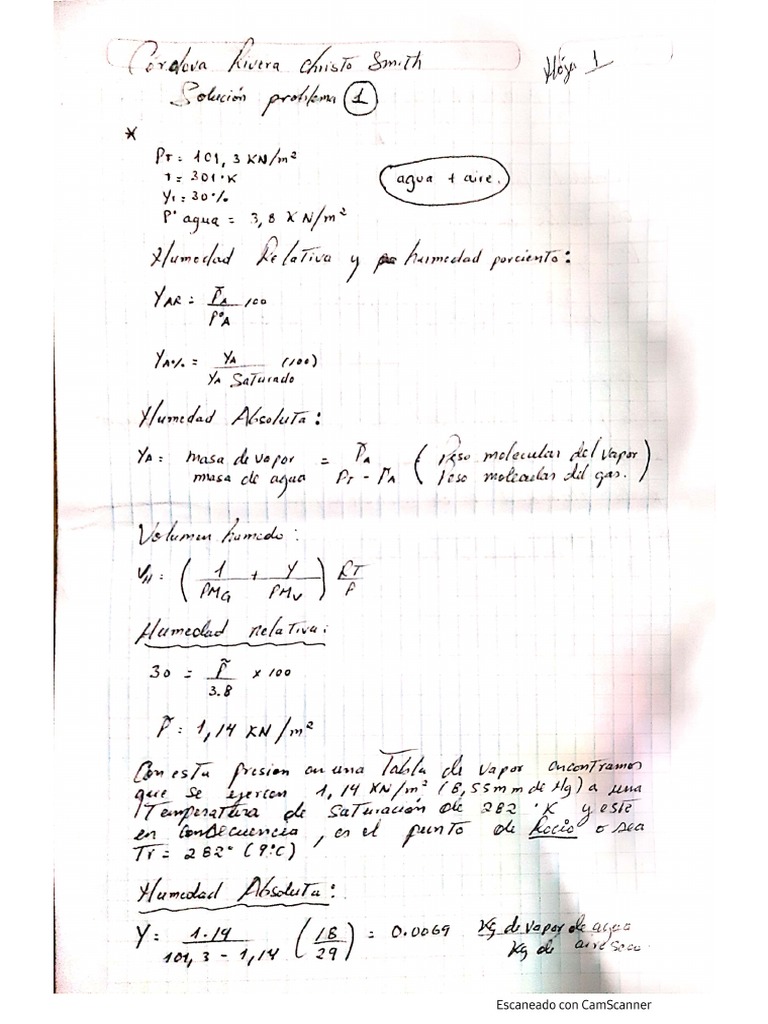 Córdova Rivera Christo Smith
Hója 1
Solución problema 1
*
PT = 101,3 KN/m²
T = 301°K
Y1 = 30%
P° agua = 3,8 KN/m²
agua + aire.
Humedad Relativa y humedad porciento:
YAR = P̃A / P°A 100
YA% = YA / YA Saturado (100)
Humedad Absoluta:
YA = masa de vapor / masa de agua = P̃A / PT - P̃A ( Peso molecular del vapor / Peso molecular del gas. )
Volumen humedo:
VH = ( 1 / PMG + Y / PMV ) RT / P
Humedad relativa:
30 = P̃ / 3.8 x 100
P̃ = 1,14 KN/m²
Con esta presion en una Tabla de vapor encontramos
que se ejercen 1,14 KN/m² (8,55 mm de Hg) a una
Temperatura de saturación de 282 °K y este
en consecuencia, es el punto de Rocío o sea
Tr = 282° (9°C)
Humedad Absoluta:
Y = 1.14 / 101,3 - 1,14 ( 18 / 29 ) = 0.0069 Kg de vapor de agua / Kg de aire seco.
Escaneado con CamScanner